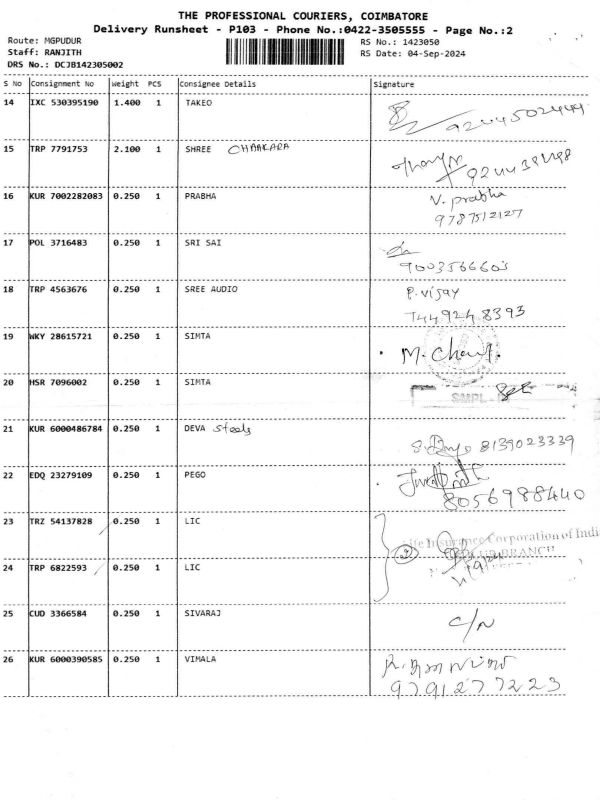 THE PROFESSIONAL COURIERS, COIMBATORE
Delivery Runsheet - P103 - Phone No.:0422-3505555 - Page No.:2
Route: MGPUDUR
RS No.: 1423050
Staff: RANJITH
RS Date: 04-Sep-2024
DRS No.: DCJB142305002
S No Consignment No Weight PCS Consignee Details Signature
14 IXC 530395190 1.400 1 TAKEO
15 TRP 7791753 2.100 1 SHREE
16 KUR 7002282083 0.250 1 PRABHA V. prabha
9787512127
17 POL 3716483 0.250 1 SRI SAI
9003566603
18 TRP 4563676 0.250 1 SREE AUDIO P. vijay
7449248393
19 WKY 28615721 0.250 1 SIMTA
20 HSR 7096002 0.250 1 SIMTA
SMPL
21 KUR 6000486784 0.250 1 DEVA Steels 8139023339
22 EDQ 23279109 0.250 1 PEGO
8056988440
23 TRZ 54137828 0.250 1 LIC
Life Insurance Corporation of India
BRANCH
24 TRP 6822593 0.250 1 LIC
25 CUD 3366584 0.250 1 SIVARAJ C/N
26 KUR 6000390585 0.250 1 VIMALA
9791277223